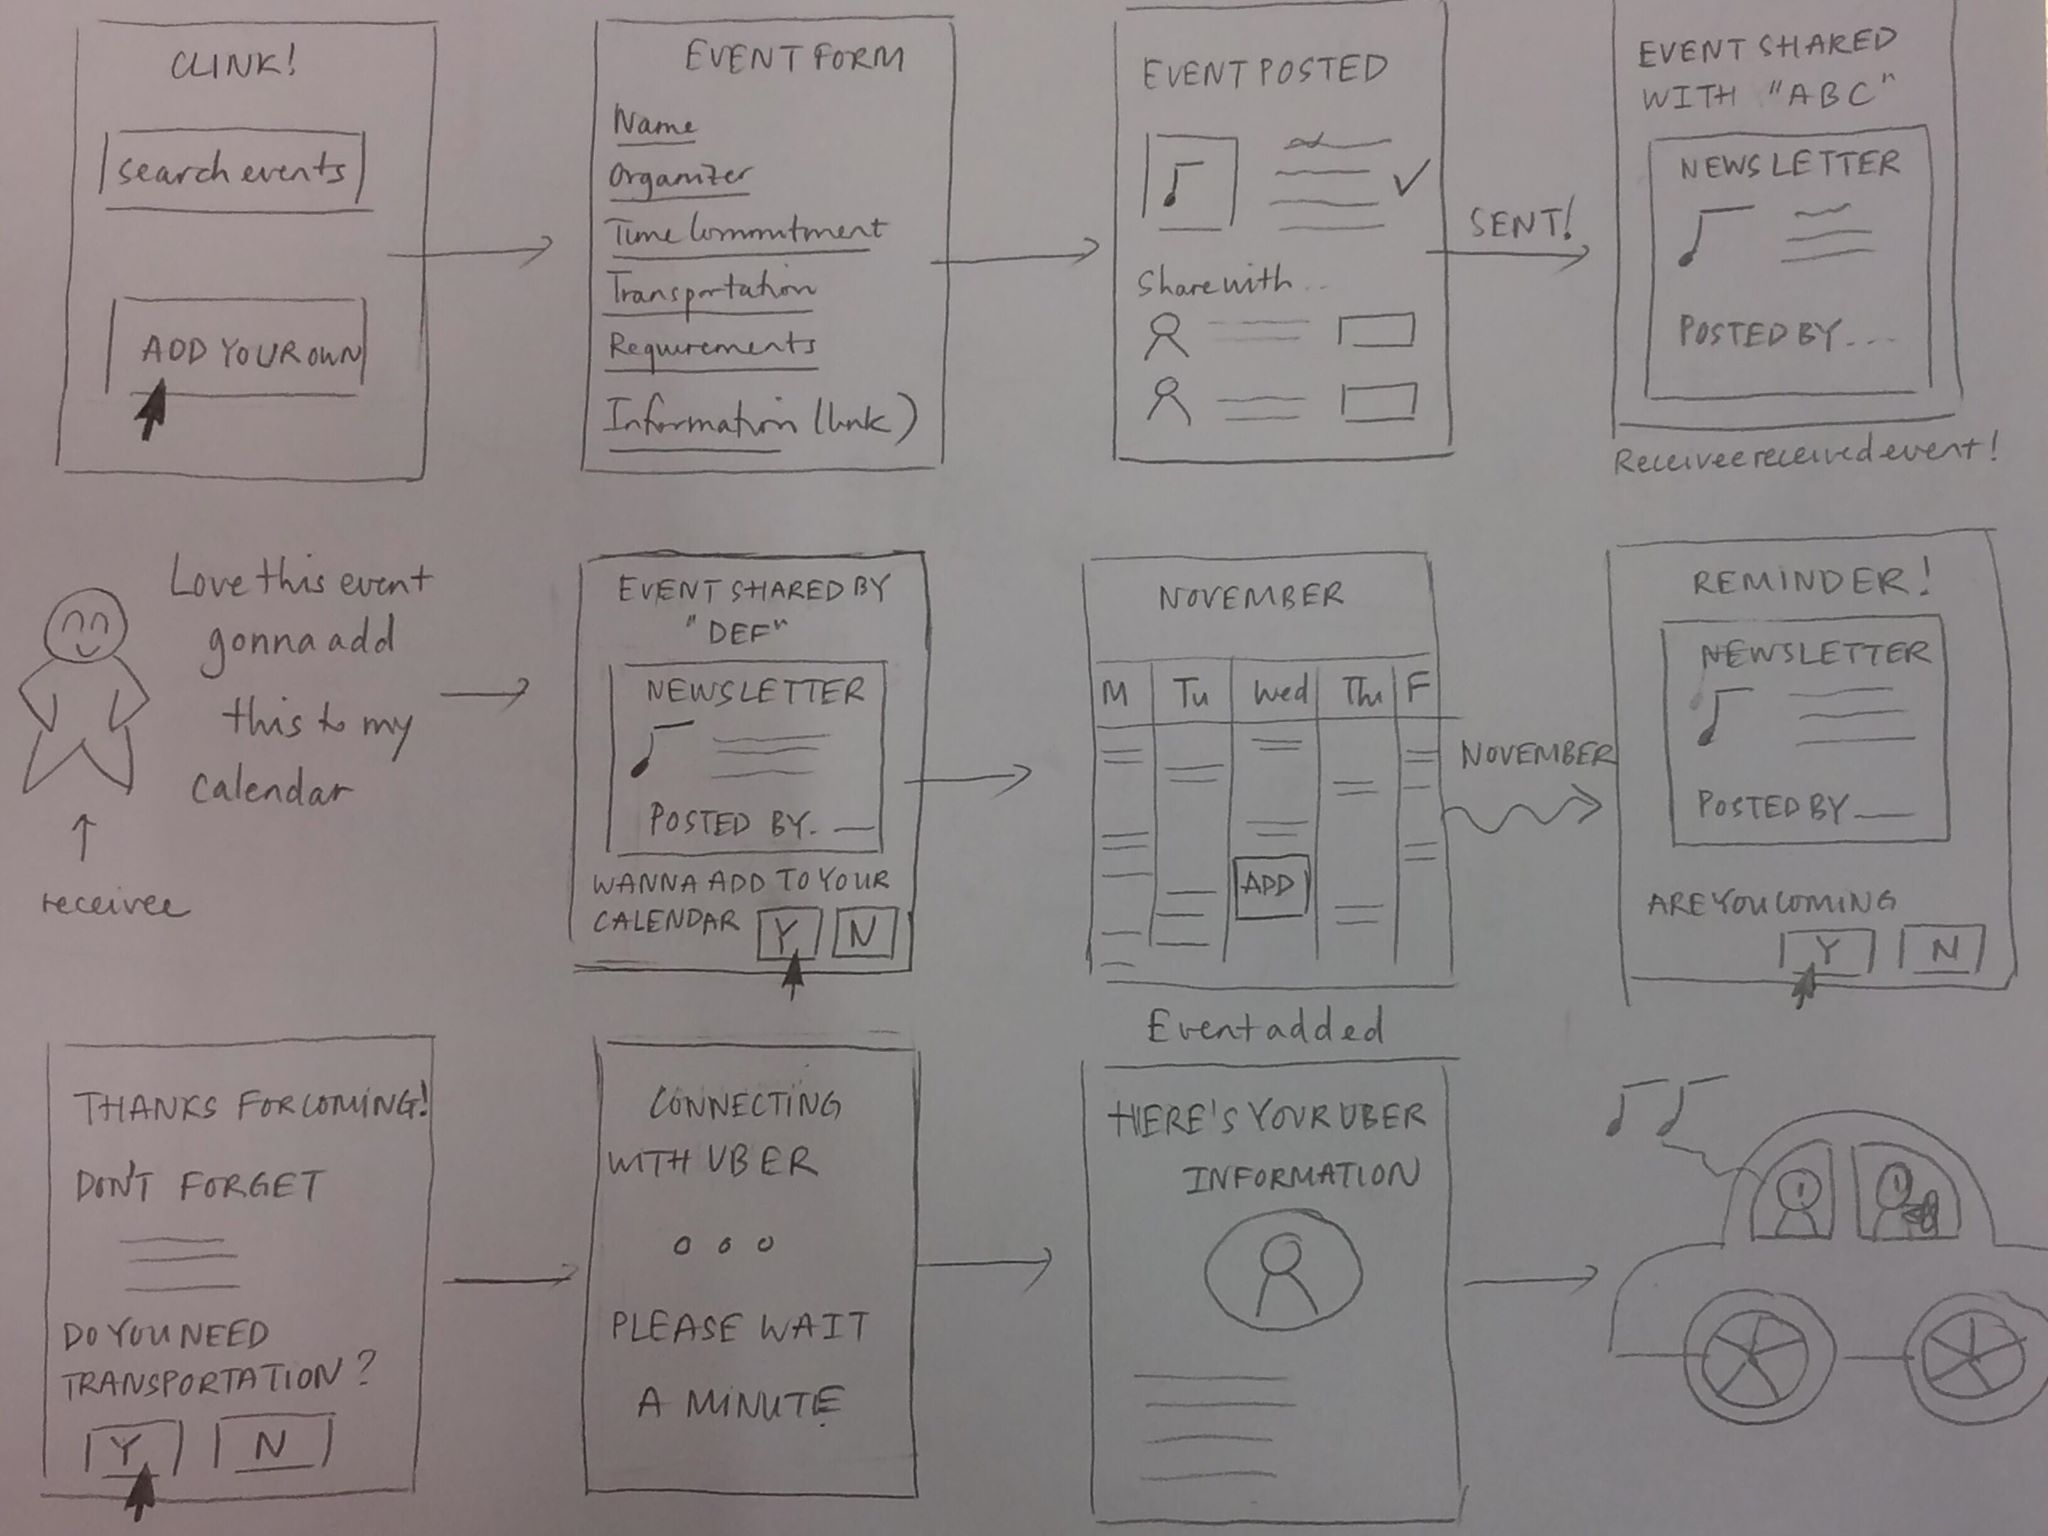 CLINK!
search events
ADD YOUR OWN
EVENT FORM
Name
Organizer
Time Commitment
Transportation
Requirements
Information (link)
EVENT POSTED
Share with...
SENT!
EVENT SHARED
WITH "ABC"
NEWSLETTER
POSTED BY....
Receivee received event!
Love this event
gonna add
this to my
calendar
receivee
EVENT SHARED BY
"DEF"
NEWSLETTER
POSTED BY.
WANNA ADD TO YOUR
CALENDAR Y N
NOVEMBER
M Tu Wed Thu F
ADD
Event added
NOVEMBER
REMINDER!
NEWSLETTER
POSTED BY
ARE YOU COMING
Y N
THANKS FOR COMING!
DON'T FORGET
DO YOU NEED
TRANSPORTATION?
Y N
CONNECTING
WITH UBER
PLEASE WAIT
A MINUTE
HERE'S YOUR UBER
INFORMATION